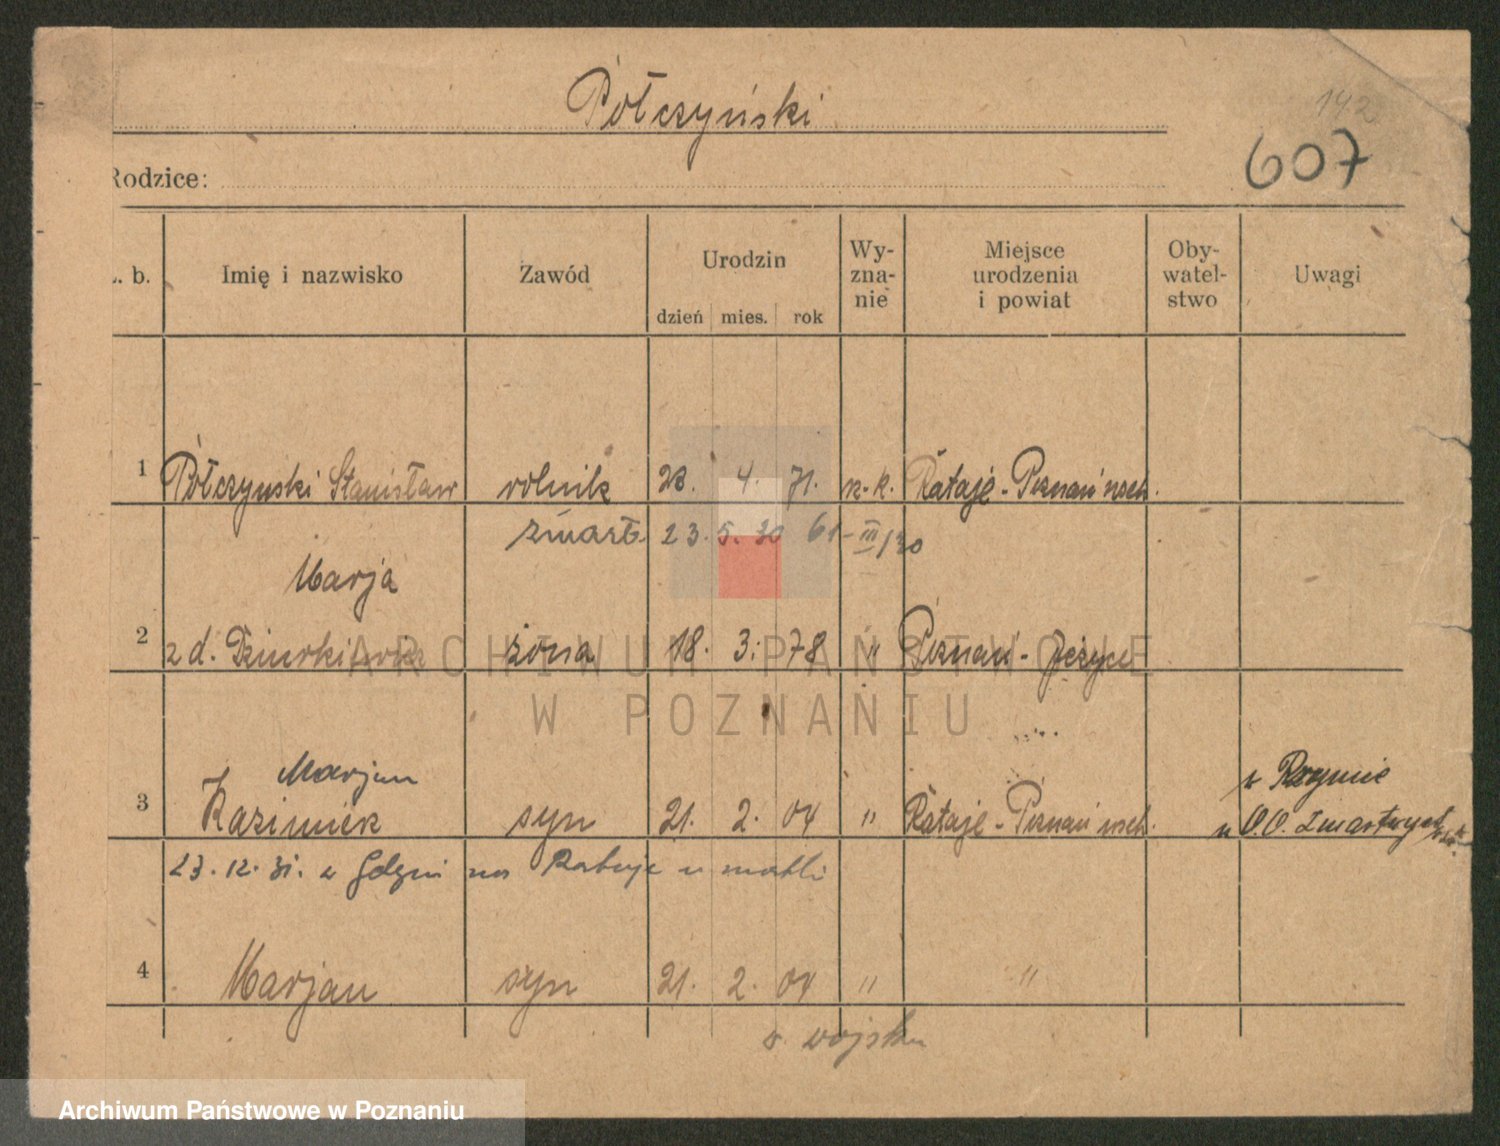 Połczyński
142
607
Rodzice:
. b. Imię i nazwisko Zawód Urodzin dzień mies. rok Wy-zna-nie Miejsce urodzenia i powiat Oby-watel-stwo Uwagi
1 Połczynski Stanisław rolnik 23. 4. 71. r.-k. Rataje - Poznań wsch.
zmarł. 23. 5. 30 61-III/30
Marja
2 z d. żona 18. 3. 78 " Poznań - Jeżyce
ARCHIWUM PAŃSTWOWE
W POZNANIU
Marjan w Rzymie
3 Kazimierz syn 21. 2. 04 " Rataje - Poznań wsch. u O.O. Zmartwych
23.12.31. w Gdyni na u matki
4 Marjan syn 21. 2. 04 " "
w wojsku
Archiwum Państwowe w Poznaniu